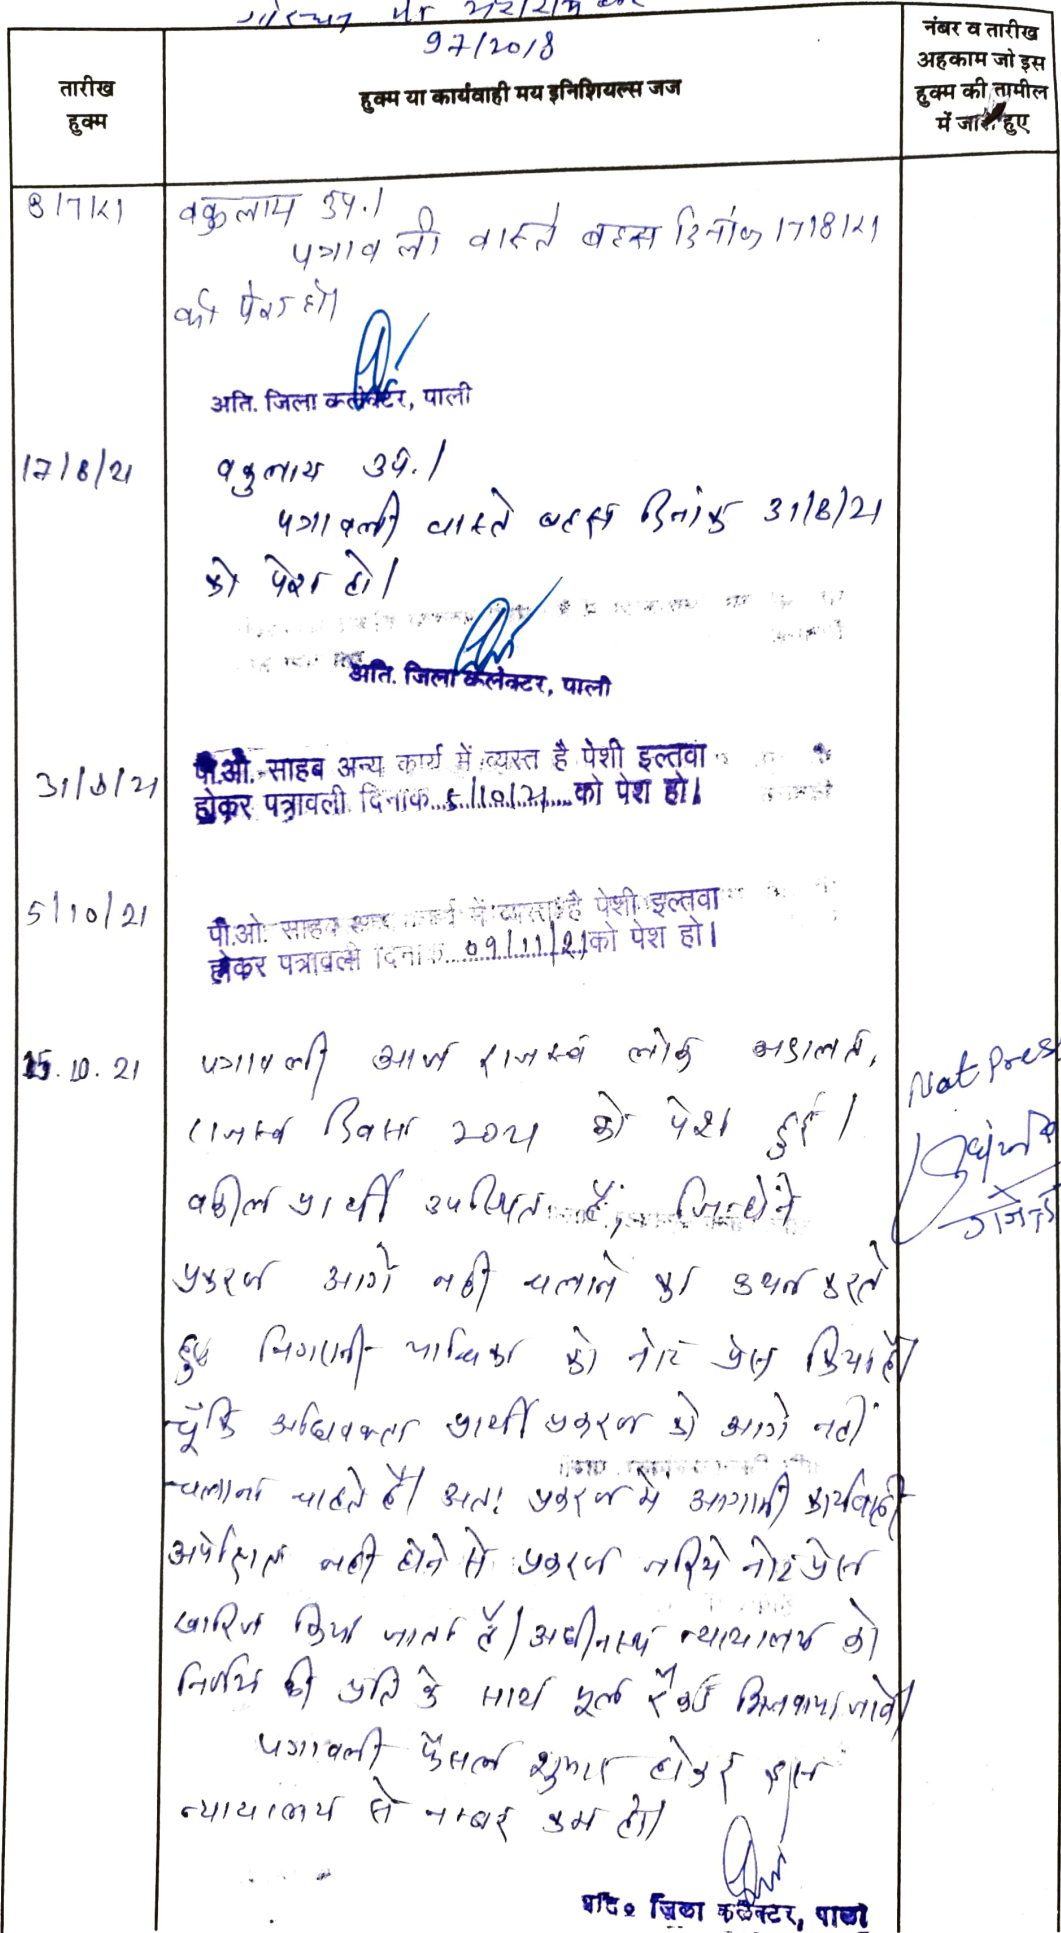 97/2018
तारीख
हुक्म
हुक्म या कार्यवाही मय इनिशियल्स जज
नंबर व तारीख
अहकाम जो इस
हुक्म की तामील
में जारी हुए
8/7/21 वकुलाय उप.।
पत्रावली वास्ते बहस दिनांक 17/8/21
को पेश हो।
अति. जिला कलेक्टर, पाली
17/8/21 वकुलाय उप.।
पत्रावली वास्ते बहस दिनांक 31/8/21
को पेश हो।
अति. जिला कलेक्टर, पाली
31/8/21 पी.ओ. साहब अन्य कार्य में व्यस्त है पेशी इल्तवा
होकर पत्रावली दिनांक 5/10/21 को पेश हो।
5/10/21 पी.ओ. साहब अन्य कार्य में व्यस्त है पेशी इल्तवा
होकर पत्रावली दिनांक 09/11/21 को पेश हो।
15.10.21 पत्रावली आज राजस्व लोक अदालत,
राजस्व दिवस 2021 को पेश हुई।
वकील प्रार्थी उपस्थित है, जिन्होने
प्रकरण आगे नही चलाने का कथन करते
हुए निगरानी याचिका को नोट प्रेस किया है।
चूँकि अधिवक्ता प्रार्थी प्रकरण को आगे नही
चलाना चाहते है। अतः प्रकरण मे आगामी कार्यवाही
अपेक्षित नही होने से प्रकरण जरिये नोट प्रेस
खारिज किया जाता है। अधीनस्थ न्यायालय को
निर्णय की प्रति के साथ मूल रेकर्ड भिजवाया जावे।
पत्रावली फैसल शुमार होकर इस
न्यायालय से नम्बर कम हो।
Not Press
अति. जिला कलेक्टर, पाली